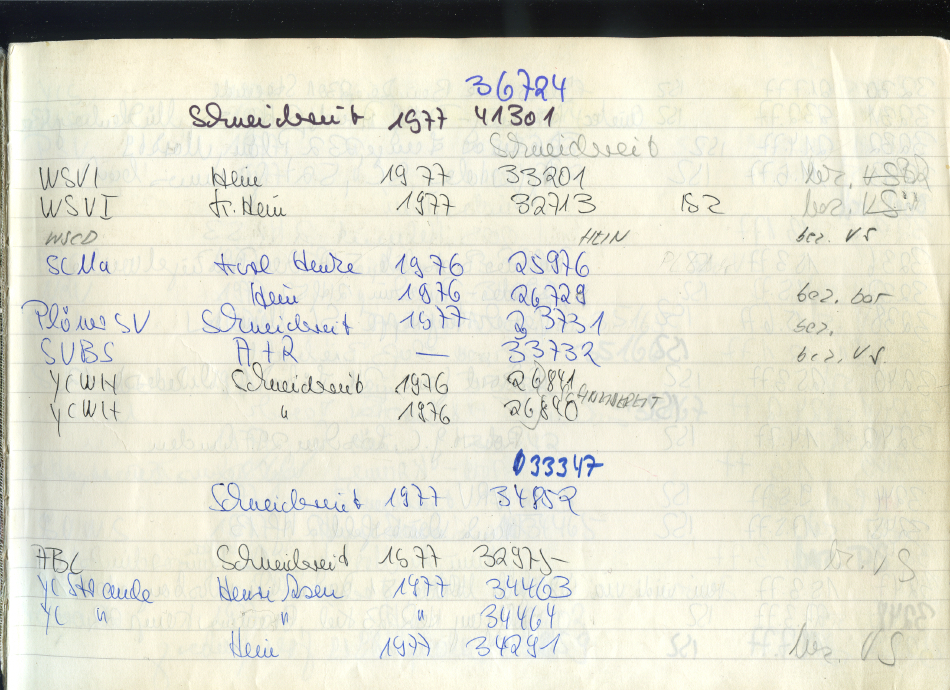 36724
Schneidereit 1977 41301
Schneidereit
WSVI Hein 1977 33201 bez. VS
WSVI Fr. Hein 1977 32713 ISZ bez. VS
WSCD HEIN bez. VS
SCMa Karl Henke 1976 25976
Hein 1976 26729 bez. bar
Plöner SV Schneidereit 1977 23731 bez.
SVBS A+R — 33732 bez. VS.
YCWH Schneidereit 1976 26841
YCWH " 1976 26840
033347
Schneidereit 1977 34852
ABC Schneidereit 1977 32975
YC Strande 1977 34463
YC " " " 34464
Hein 1977 34291 bez. VS